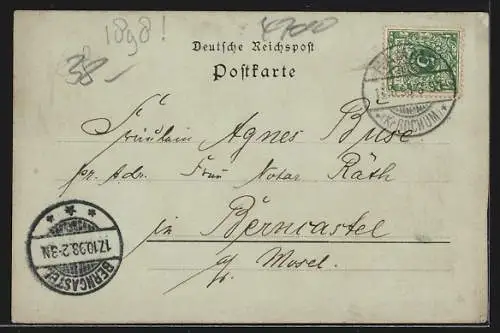 1898!
4700
38-
Deutsche Reichspost
Postkarte
(Kr. BOCHUM.)
Fräulein Agnes Buse
pr. Adr. Frau Notar Räth
in Berncastel
a/ Mosel.
17.10.98.2-3N
BERNCASTEL